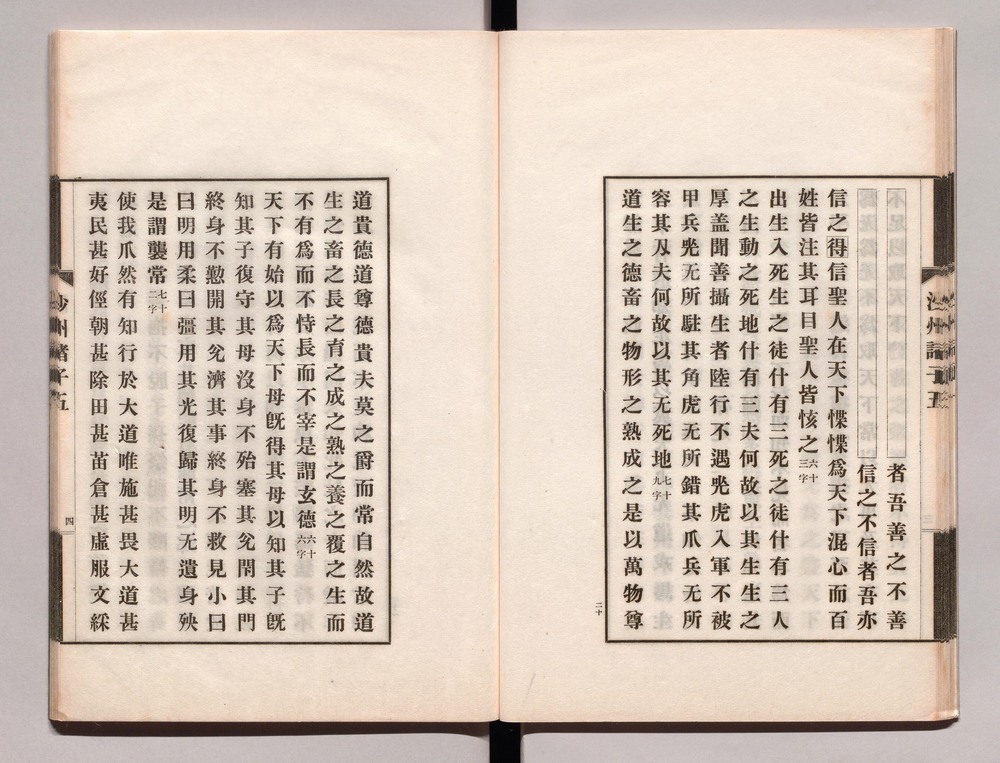 者吾善之不善
信之不信者吾亦
信之得信聖人在天下惵惵爲天下混心而百
姓皆注其耳目聖人皆恢之六十三字
出生入死生之徒什有三死之徒什有三人
之生動之死地什有三夫何故以其生生之
厚盖聞善攝生者陸行不遇兕虎入軍不被
甲兵兕无所駐其角虎无所錯其爪兵无所
容其刄夫何故以其无死地七十九字
道生之德畜之物形之熟成之是以萬物尊
二十
道貴德道尊德貴夫莫之爵而常自然故道
生之畜之長之育之成之熟之養之覆之生而
不有爲而不恃長而不宰是謂玄德六十六字
天下有始以爲天下母旣得其母以知其子旣
知其子復守其母沒身不殆塞其兊閇其門
終身不懃開其兊濟其事終身不救見小曰
曰明用柔曰彊用其光復歸其明无遺身殃
是謂襲常七十二字
使我爪然有知行於大道唯施甚畏大道甚
夷民甚好俓朝甚除田甚苗倉甚虛服文綵
四